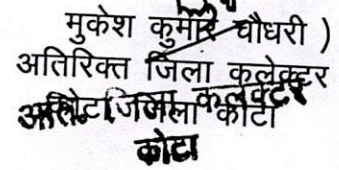 मुकेश कुमार चौधरी )
अतिरिक्त जिला कलेक्टर
अति. जिला कलेक्टर
कोटा